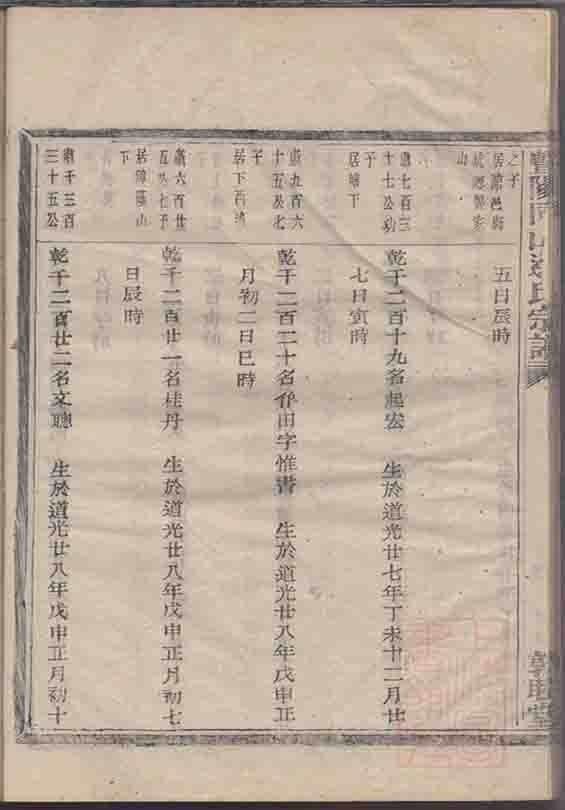 宗譜
之子
山
五日辰時
肅七百三
十七公幼
子
居嶂下
乾千二百十九名起宏 生於道光廿七年丁未十二月廿
七日寅時
肅九百六
十五公七
子
居下西湾
乾千二百二十名作田字惟書 生於道光廿八年戊申正
月初二日巳時
肅六百廿
五公七子
居嶂陽山
下
乾千二百廿一名桂丹 生於道光廿八年戊申正月初七
日辰時
肅千三百
三十五公
乾千二百廿二名文聰 生於道光廿八年戊申正月初十